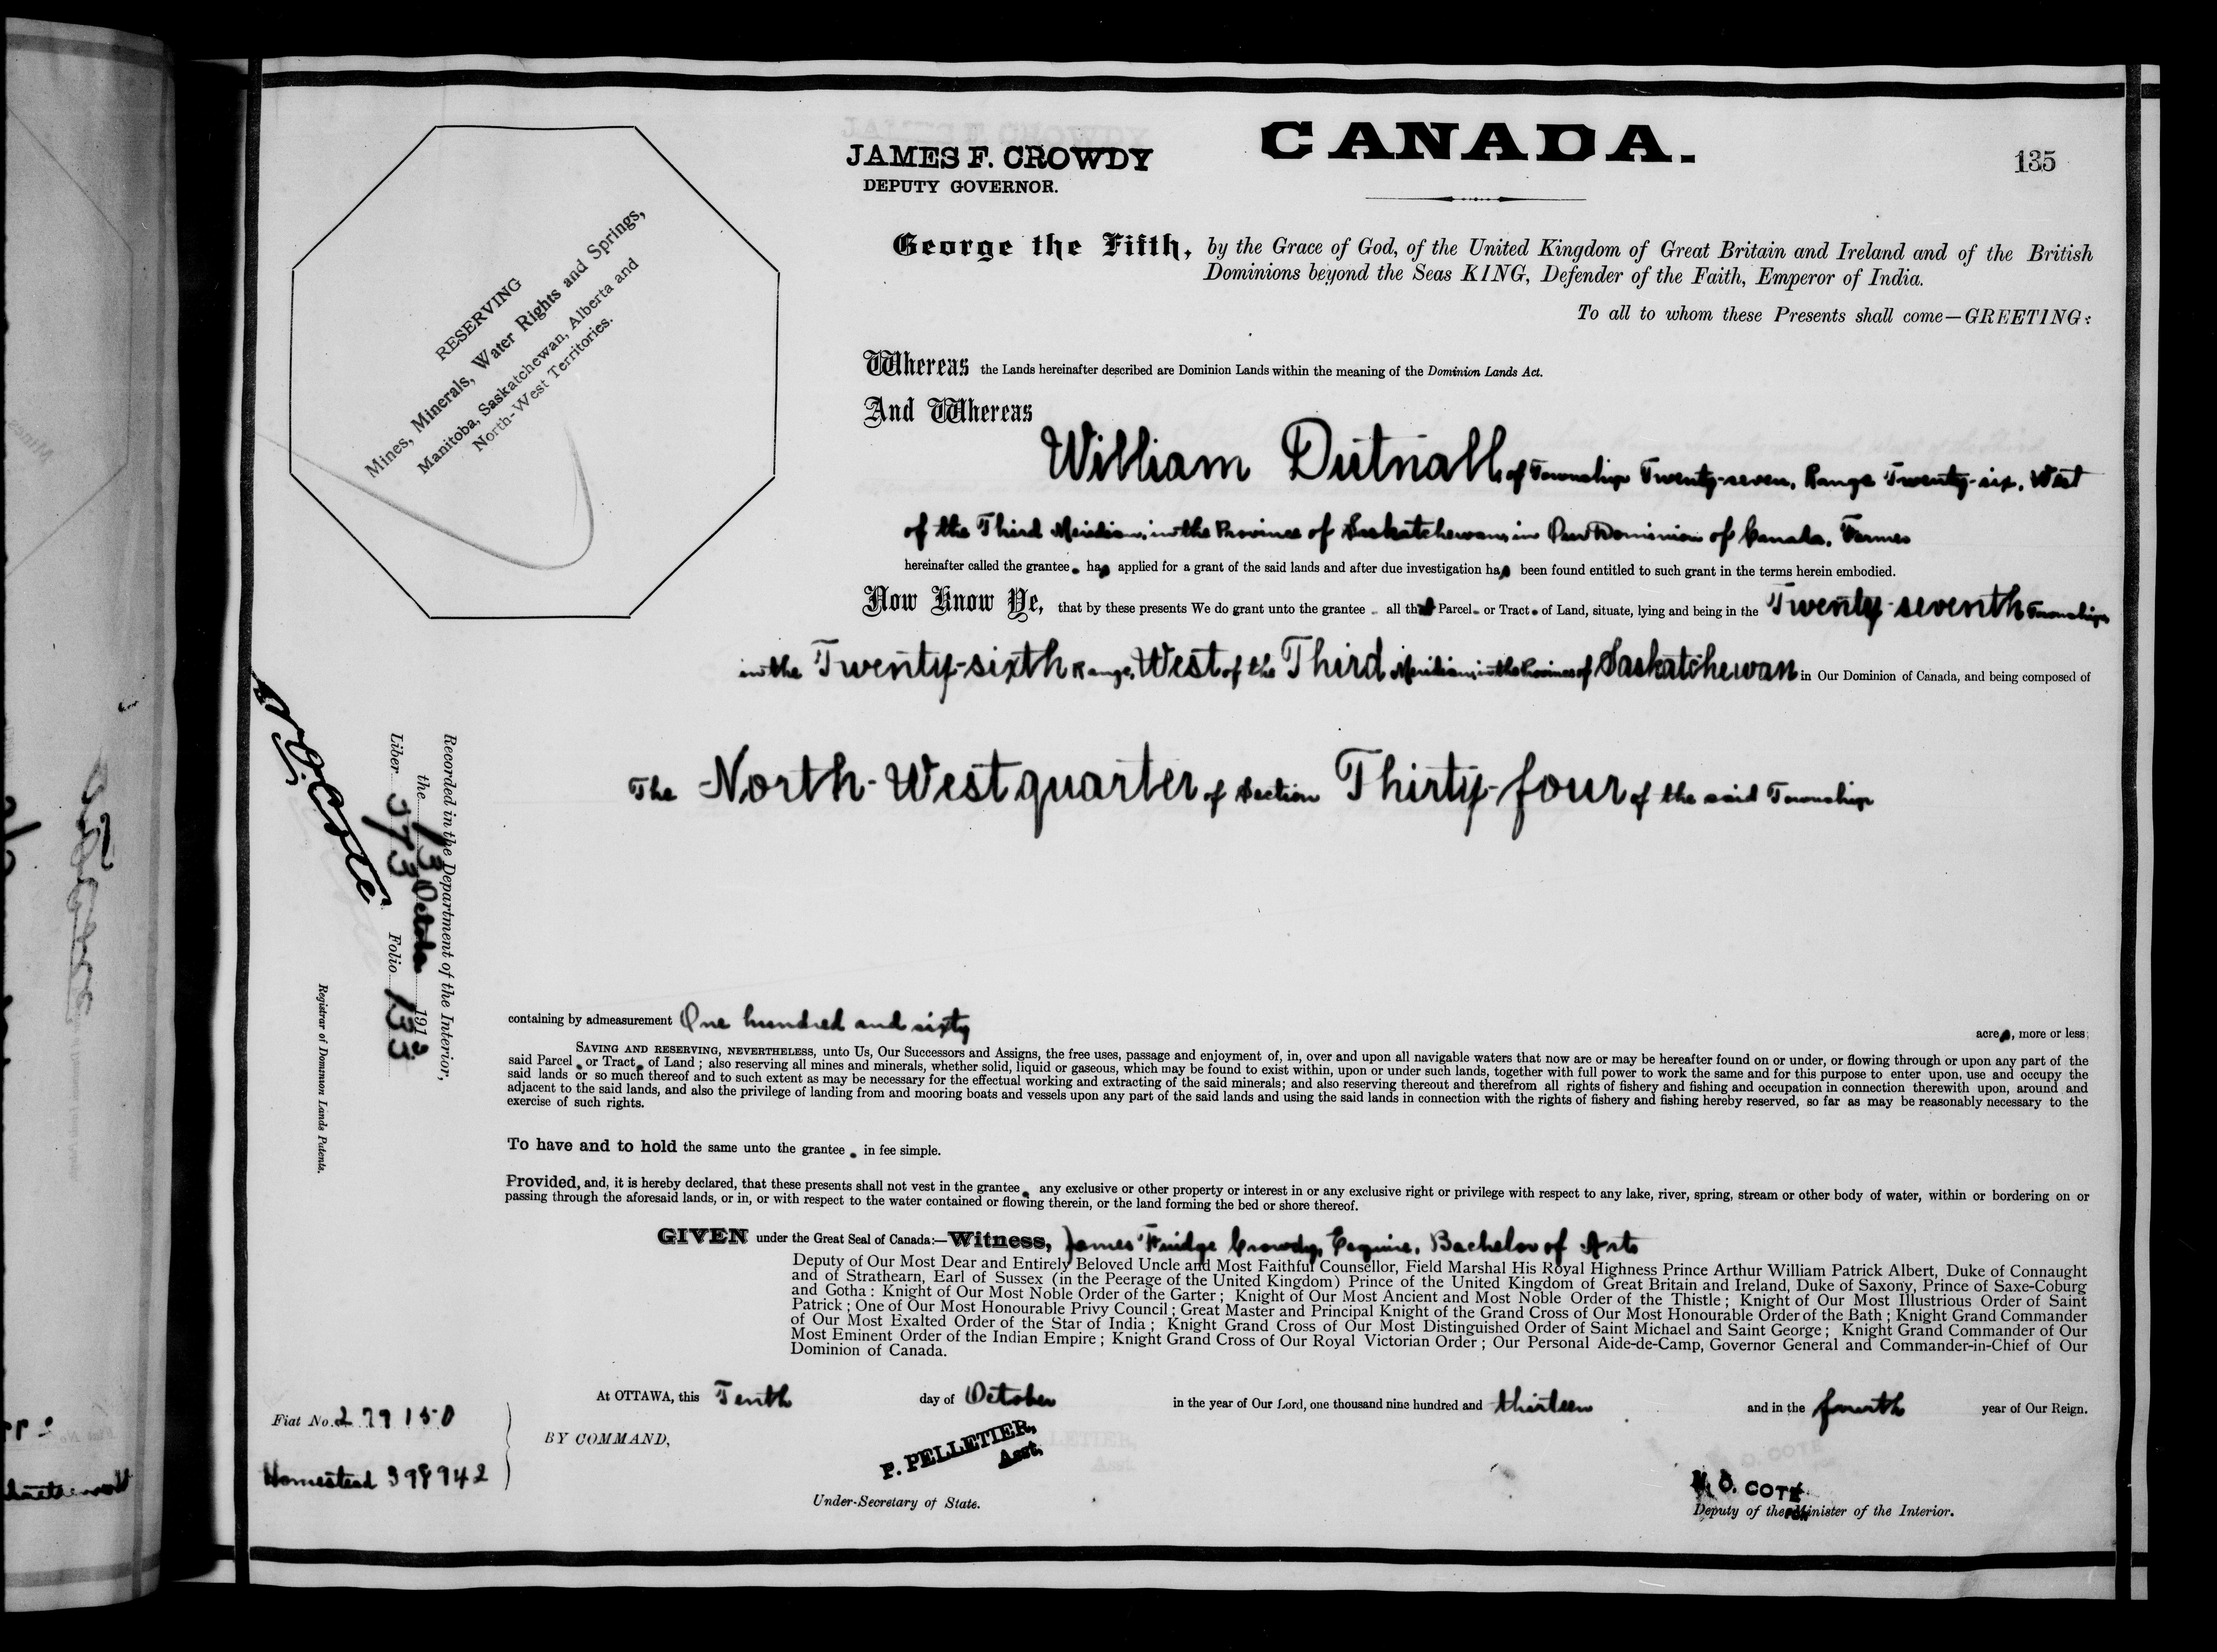 CANADA.
JAMES F. CROWDY
DEPUTY GOVERNOR.
135
RESERVING
Mines, Minerals, Water Rights and Springs,
Manitoba, Saskatchewan, Alberta and
North-West Territories.
George the Fifth, by the Grace of God, of the United Kingdom of Great Britain and Ireland and of the British
Dominions beyond the Seas KING, Defender of the Faith, Emperor of India.
To all to whom these Presents shall come—GREETING:
Whereas the Lands hereinafter described are Dominion Lands within the meaning of the Dominion Lands Act.
And Whereas
William Dutnall of Township Twenty-seven, Range Twenty-six, West
of the Third Meridian, in the Province of Saskatchewan, in Our Dominion of Canada, Farmer
hereinafter called the grantee has applied for a grant of the said lands and after due investigation has been found entitled to such grant in the terms herein embodied.
Now Know Ye, that by these presents We do grant unto the grantee all that Parcel or Tract of Land, situate, lying and being in the Twenty-seventh Township,
in the Twenty-sixth Range, West of the Third Meridian, in the Province of Saskatchewan in Our Dominion of Canada, and being composed of
The North-West quarter of Section Thirty-four of the said Township
containing by admeasurement One hundred and sixty acres, more or less;
SAVING AND RESERVING, NEVERTHELESS, unto Us, Our Successors and Assigns, the free uses, passage and enjoyment of, in, over and upon all navigable waters that now are or may be hereafter found on or under, or flowing through or upon any part of the
said Parcel or Tract of Land; also reserving all mines and minerals, whether solid, liquid or gaseous, which may be found to exist within, upon or under such lands, together with full power to work the same and for this purpose to enter upon, use and occupy the
said lands or so much thereof and to such extent as may be necessary for the effectual working and extracting of the said minerals; and also reserving thereout and therefrom all rights of fishery and fishing and occupation in connection therewith upon, around and
adjacent to the said lands, and also the privilege of landing from and mooring boats and vessels upon any part of the said lands and using the said lands in connection with the rights of fishery and fishing hereby reserved, so far as may be reasonably necessary to the
exercise of such rights.
To have and to hold the same unto the grantee in fee simple.
Provided, and, it is hereby declared, that these presents shall not vest in the grantee any exclusive or other property or interest in or any exclusive right or privilege with respect to any lake, river, spring, stream or other body of water, within or bordering on or
passing through the aforesaid lands, or in, or with respect to the water contained or flowing therein, or the land forming the bed or shore thereof.
GIVEN under the Great Seal of Canada:—Witness, James Fuidge Crowdy, Esquire, Bachelor of Arts
Deputy of Our Most Dear and Entirely Beloved Uncle and Most Faithful Counsellor, Field Marshal His Royal Highness Prince Arthur William Patrick Albert, Duke of Connaught
and of Strathearn, Earl of Sussex (in the Peerage of the United Kingdom) Prince of the United Kingdom of Great Britain and Ireland, Duke of Saxony, Prince of Saxe-Coburg
and Gotha: Knight of Our Most Noble Order of the Garter; Knight of Our Most Ancient and Most Noble Order of the Thistle; Knight of Our Most Illustrious Order of Saint
Patrick; One of Our Most Honourable Privy Council; Great Master and Principal Knight of the Grand Cross of Our Most Honourable Order of the Bath; Knight Grand Commander
of Our Most Exalted Order of the Star of India; Knight Grand Cross of Our Most Distinguished Order of Saint Michael and Saint George; Knight Grand Commander of Our
Most Eminent Order of the Indian Empire; Knight Grand Cross of Our Royal Victorian Order; Our Personal Aide-de-Camp, Governor General and Commander-in-Chief of Our
Dominion of Canada.
At OTTAWA, this Tenth day of October in the year of Our Lord, one thousand nine hundred and thirteen and in the fourth year of Our Reign.
BY COMMAND,
P. PELLETIER,
Asst.
Under-Secretary of State.
N. O. COTE
Deputy of the Minister of the Interior.
Fiat No. 279150
Homestead 398942
Recorded in the Department of the Interior,
the 13 October 1913
Liber 373 Folio 133
N O Coté
Registrar of Dominion Lands Patents.